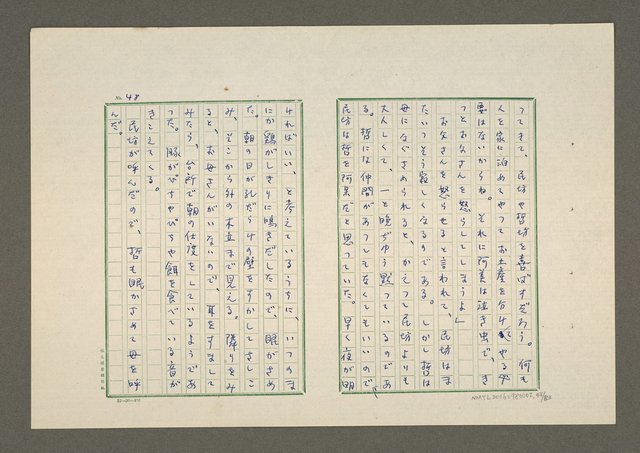 ってきて、民坊や哲坊を喜ばすだろう。何も
人を家に泊めてやってお土産を分けてやる必
要はないからね。それに阿美は泣き虫で、き
っとお父さんを怒らしてしまうよ」
お父さんを怒らせると言われて、民坊はま
たいっそう寂しくなるのである。しかし哲は
母になぐさめられると、かえって民坊よりも
大人しくて、一と晩ぢゅう黙っているのであ
る。哲には仲間があってもなくてもいいので、
民坊は哲を阿呆だと思っていた。早く夜が明
ければいい、と考えているうちに、いつのま
にか鶏がしきりに鳴きだしたので、眠がさめ
た。朝の日が乳だら4の壁をすかしてさしこ
み、そこから外の木立まで見える。隣りをみ
ると、お母さんがいないので、耳をすまして
みたら、台所で朝の仕度をしているようであ
った。豚がぴちゃぴちゃ餌を食べている音が
きこえてくる。
民坊が呼んだので、哲も眠がさめて母を呼
んだ。
No. 48
20×20=400